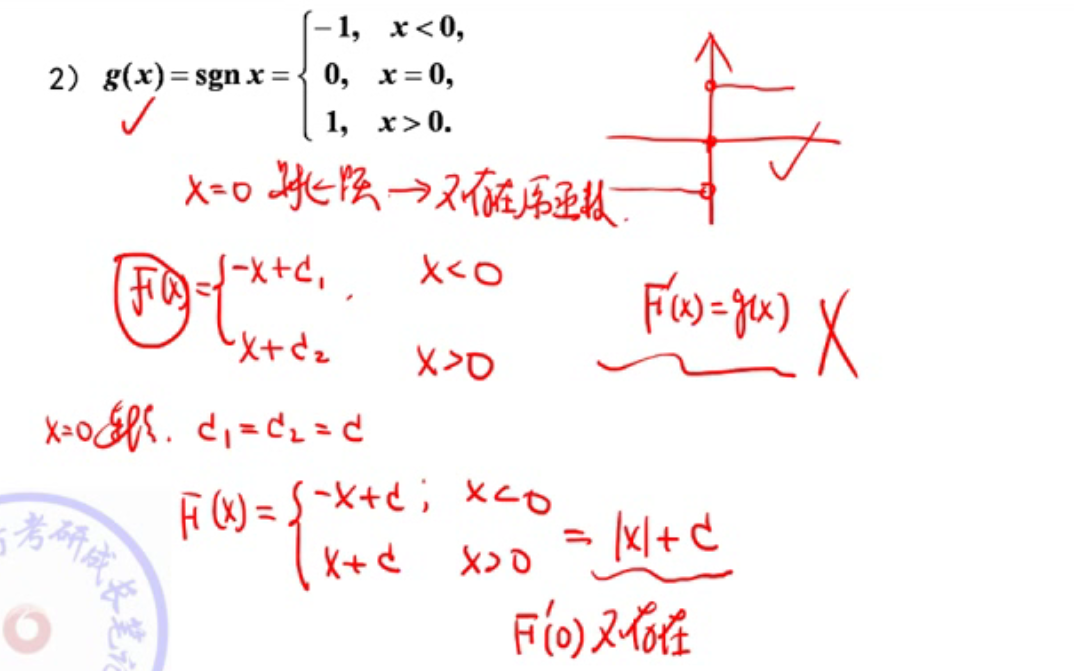 2) g(x) = sgn x = { -1, x < 0,
0, x = 0,
1, x > 0.
x=0 跳跃间断 → 不存在原函数.
F(x) = { -x+c₁, x<0
x+c₂ x>0
F'(x)=g(x) X
x=0连续. c₁=c₂=c
F(x) = { -x+c; x<0
x+c x>0 = |x|+c
F'(0)不存在
考研成长笔记